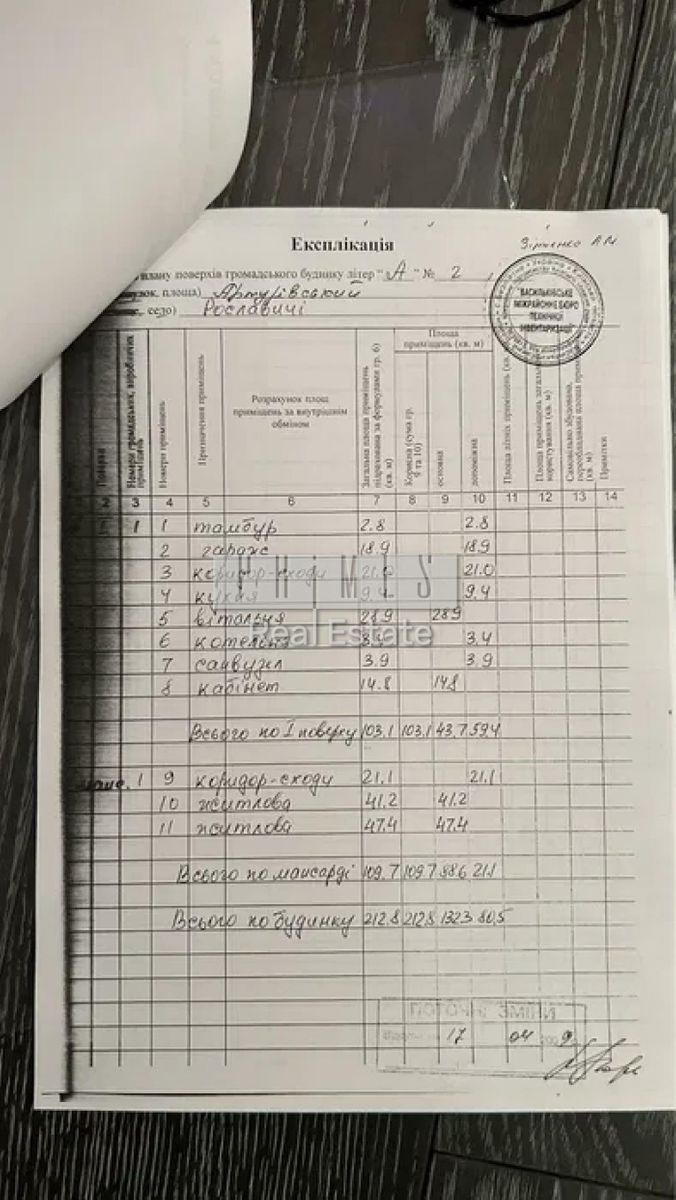 Експлікація
Зінченко А М
плану поверхів громадського будинку літер " А " № 2
площа) Артурівський
село) Рославичі
"ВАСИЛЬКІВСЬКЕ
МІЖРАЙОННЕ БЮРО
ТЕХНІЧНОЇ
ІНВЕНТАРИЗАЦІЇ"
Номери приміщень
Призначення приміщень
Розрахунок площ
приміщень за внутрішнім
обміном
Загальна площа приміщень
підрахована за формулами гр. 6)
(кв. м)
Площа
приміщень (кв. м)
Корисна (сума гр.
9 та 10)
основна
допоміжна
Площа літніх приміщень (кв.
Площа приміщень загальн
користування (кв. м)
Самовільно збудована,
переобладнана площа прим
(кв. м)
Примітки
2 3 4 5 6 7 8 9 10 11 12 13 14
1 1 тамбур 2.8 2.8
2 гараж 18.9 18.9
3 коридор-сходи 21.0 21.0
4 кухня 9.4 9.4
5 вітальня 28.9 28.9
6 котельня 3.4 3.4
7 санвузл 3.9 3.9
8 кабінет 14.8 14.8
Real Estate
Всього по I поверху 103.1 103.1 43.7 59.4
манс. 1 9 коридор-сходи 21.1 21.1
10 житлова 41.2 41.2
11 житлова 47.4 47.4
Всього по мансарді 109.7 109.7 88.6 21.1
Всього по будинку 212.8 212.8 132.3 80.5
ПОТОЧНІ ЗМІНИ
17 04 2009